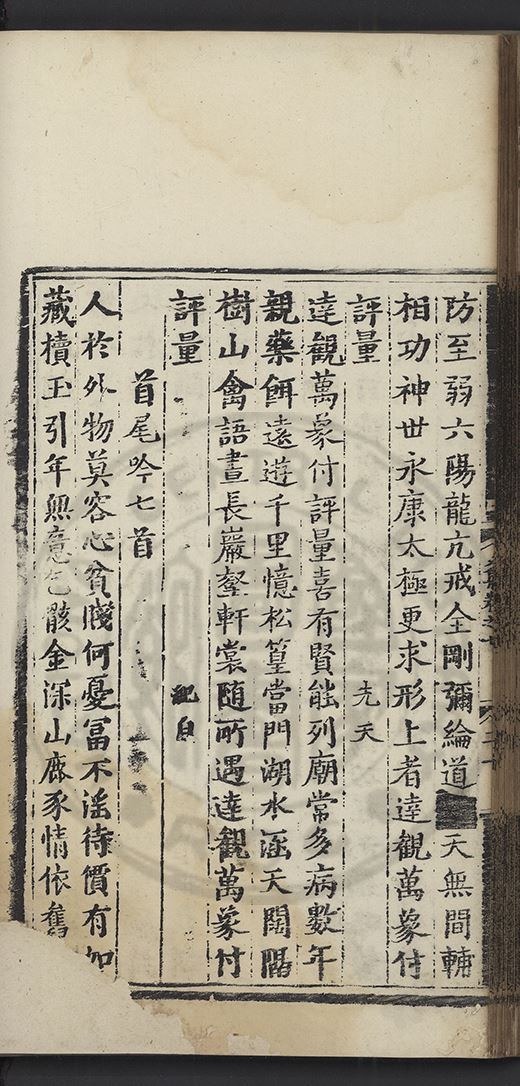 防至弱六陽龍亢戒全剛彌綸道 天無間輔
相功神世永康太極更求形上者達觀萬象付
評量 先天
達觀萬象付評量喜有賢能列廟常多病數年
親藥餌遠遊千里憶松篁當門湖水涵天闊隔
樹山禽語晝長巖壑軒裳隨所遇達觀萬象付
評量 紀自
首尾吟七首
人於外物莫容心貧賤何憂富不淫待價有如
藏櫝玉引年無意乞骸金深山麋豕情依舊